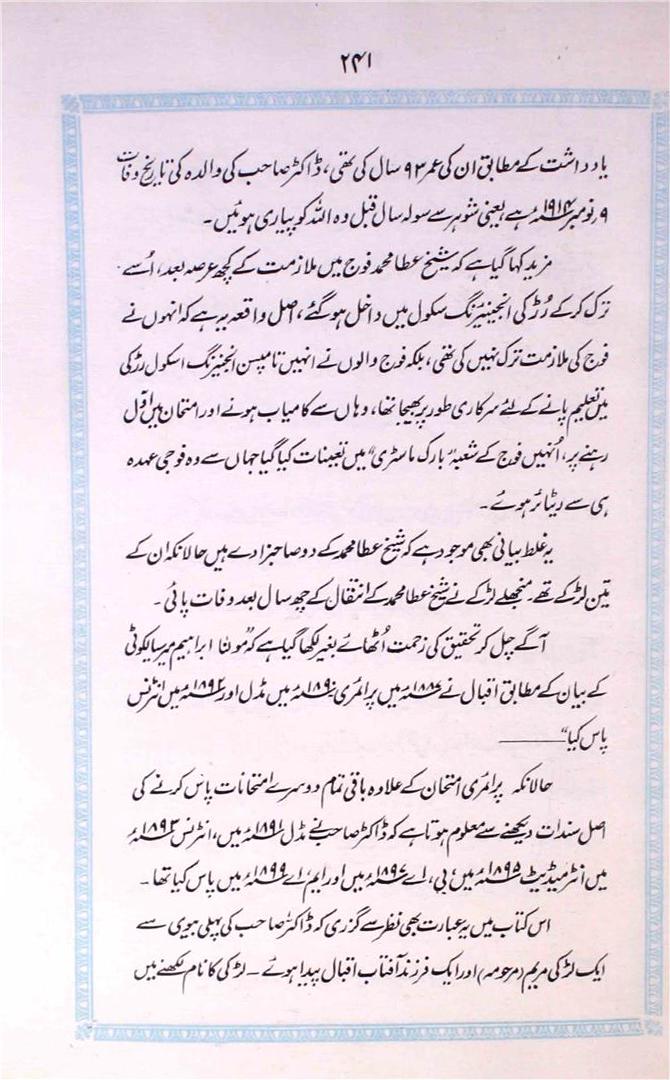 ۲۴۱
یادداشت کے مطابق ان کی عمر ۹۳ سال کی تھی، ڈاکٹر صاحب کی والدہ کی تاریخ وفات
۹ نومبر ۱۹۱۴ء ہے یعنی شوہر سے سولہ سال قبل وہ اللہ کو پیاری ہوئیں۔
مزید کہا گیا ہے کہ شیخ عطا محمد فوج میں ملازمت کے کچھ عرصہ بعد، اُسے
ترک کر کے رُڑکی انجینیئرنگ سکول میں داخل ہو گئے، اصل واقعہ یہ ہے کہ انہوں نے
فوج کی ملازمت ترک نہیں کی تھی، بلکہ فوج والوں نے انہیں تامپسن انجنیرنگ اسکول رڑکی
میں تعلیم پانے کے لئے سرکاری طور پر بھیجا تھا، وہاں سے کامیاب ہونے اور امتحان میں اوّل
رہنے پر، اُنہیں فوج کے شعبہ "بارک ماسٹری" میں تعینات کیا گیا جہاں سے وہ فوجی عہدہ
ہی سے ریٹائر ہوئے۔
یہ غلط بیانی بھی موجود ہے کہ شیخ عطا محمد کے دو صاحبزادے ہیں حالانکہ ان کے
تین لڑکے تھے۔ منجھلے لڑکے نے شیخ عطا محمد کے انتقال کے چھ سال بعد وفات پائی۔
آگے چل کر تحقیق کی زحمت اُٹھائے بغیر لکھا گیا ہے کہ "مولٰنا ابراہیم میر سیالکوٹی
کے بیان کے مطابق اقبال نے ۱۸۸۷ء میں پرائمری ۱۸۹۰ء میں مڈل اور ۱۸۹۲ء میں انٹرنس
پاس کیا"
حالانکہ پرائمری امتحان کے علاوہ باقی تمام دوسرے امتحانات پاس کرنے کی
اصل سندات دیکھنے سے معلوم ہوتا ہے کہ ڈاکٹر صاحب نے مڈل ۱۸۹۱ء میں، انٹرنس ۱۸۹۳ء
میں انٹرمیڈیٹ ۱۸۹۵ء میں بی، اے ۱۸۹۷ء میں اور ایم، اے ۱۸۹۹ء میں پاس کیا تھا۔
اس کتاب میں یہ عبارت بھی نظر سے گزری کہ ڈاکٹر صاحب کی پہلی بیوی سے
ایک لڑکی مریم (مرحومہ) اور ایک فرزند آفتاب اقبال پیدا ہوئے۔ لڑکی کا نام لکھنے میں